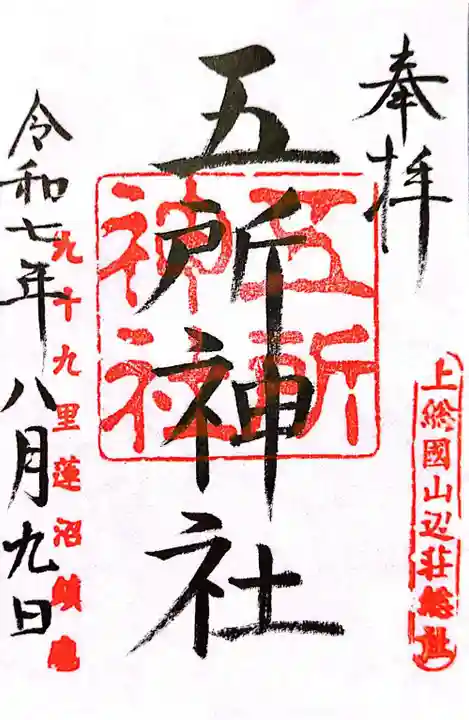 奉拝
上総國山辺荘総社
五所神社
五所神社
令和七年八月九日
九十九里蓮沼鎮座